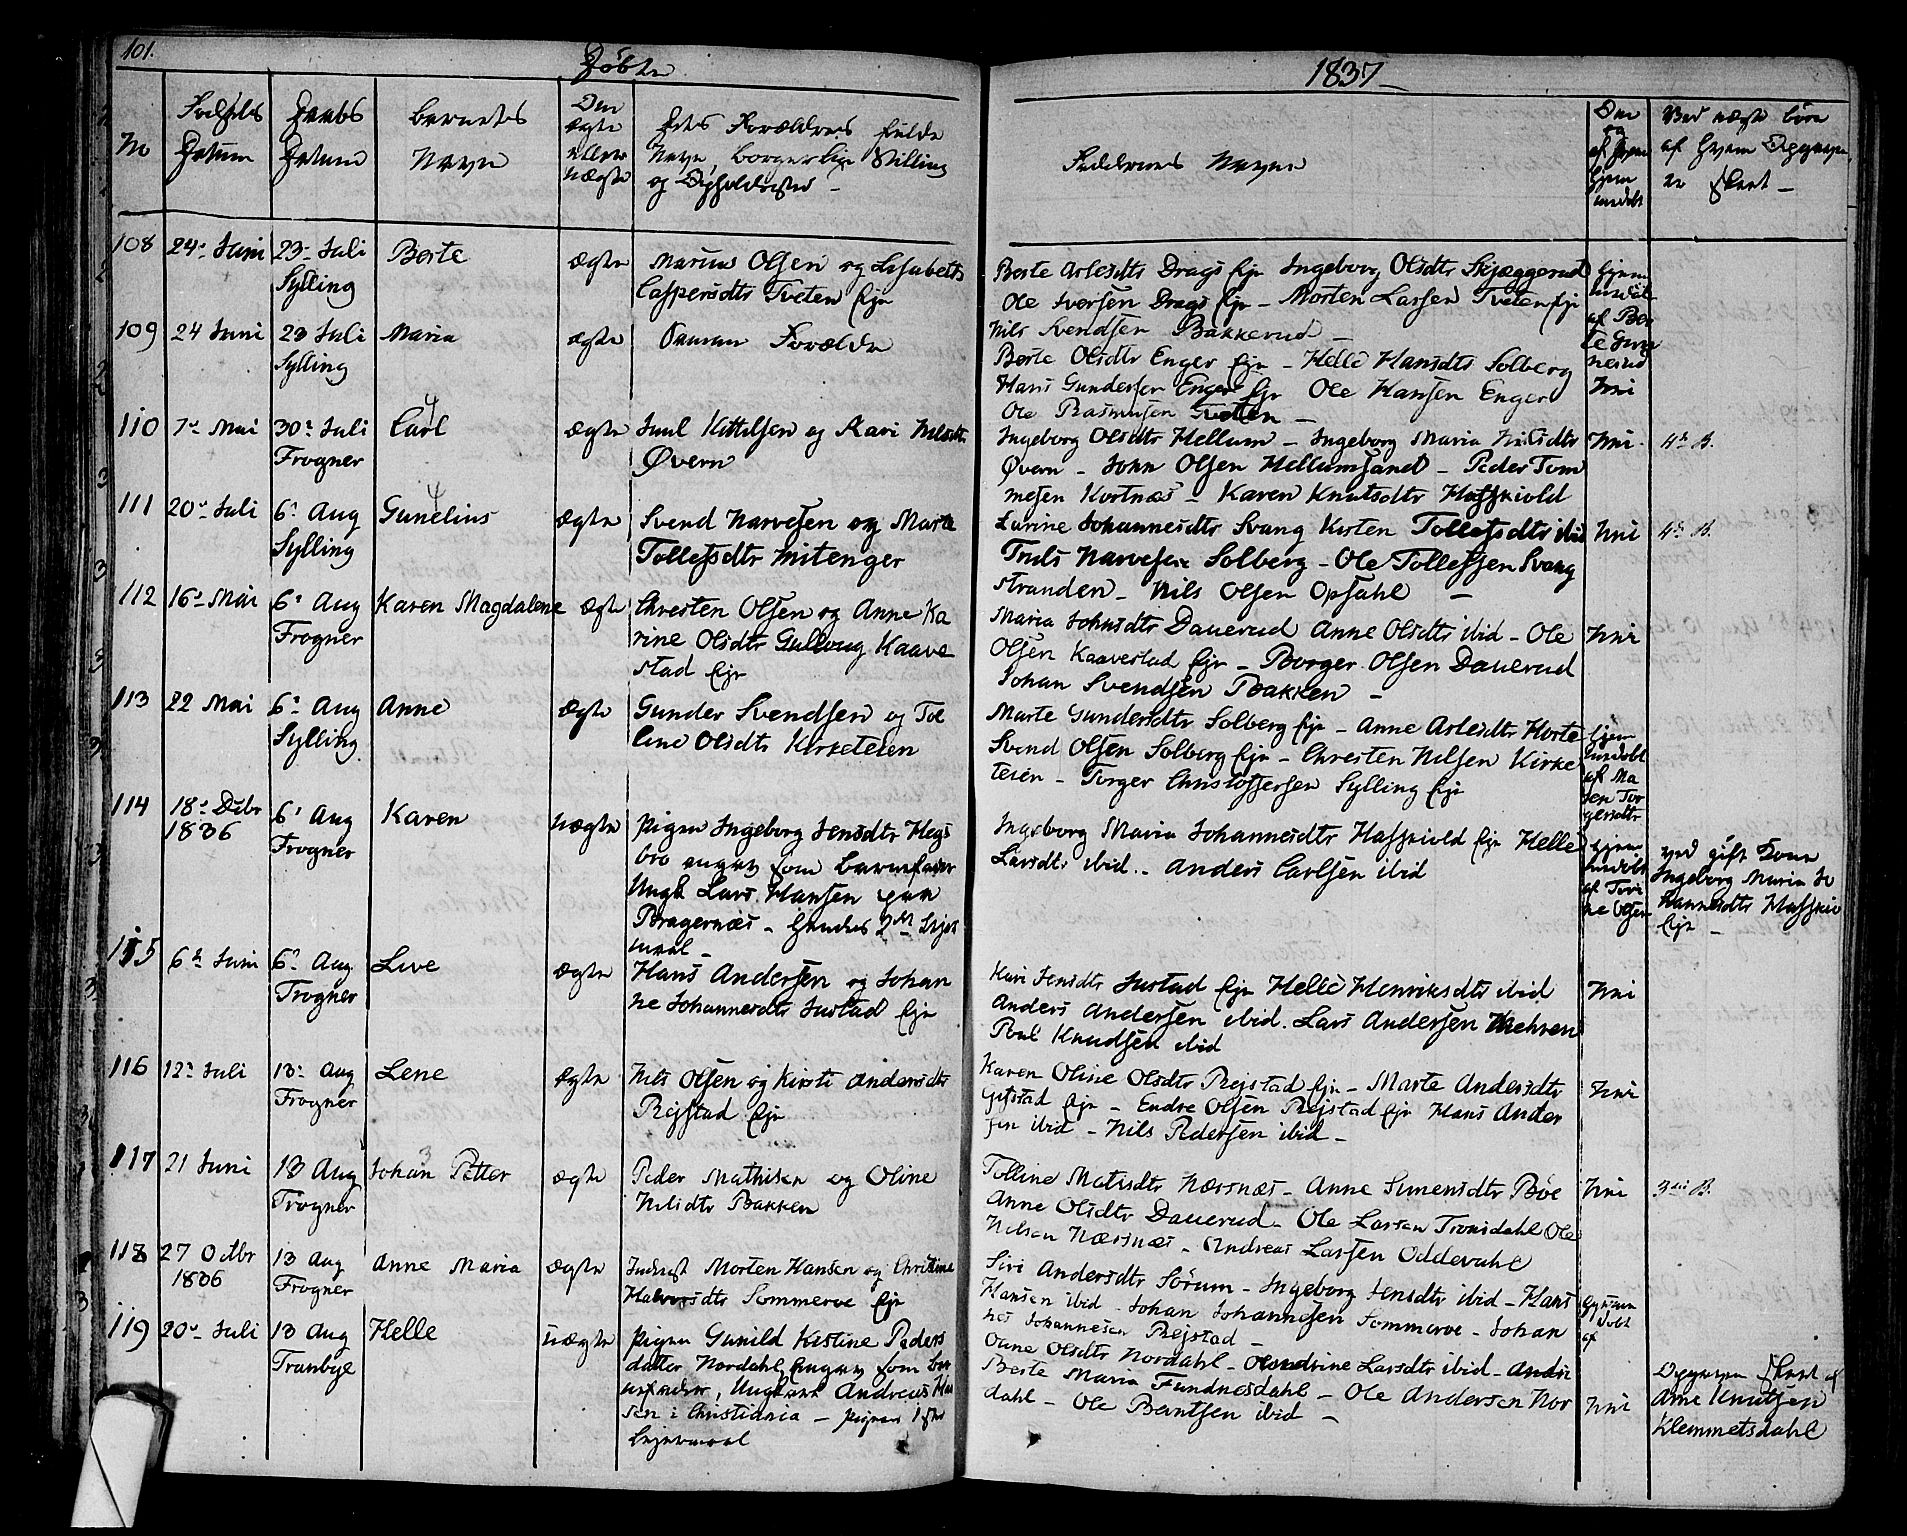 101.
Døbte
1837
No
Fødsels Datum
Daabs Datum
Barnets Navn
Den ægte eller uægte
Dets Forældres fulde
Navn, borgerlige Stilling
og Opholdssted
Fadderens Navne
Om og af hvem hjemmedøbt
Ved uægte børn
af hvem Opgaven
er skeet
108 24de Juni 23de Juli Sylling Berte ægte
Marius Olsen og Lisabeth
Caspersdtr Tveten Eje
Berte Arlesdtr Drags Eje Ingeborg Olsdtr Skjæggerud
Ole Iversen Drags Eje - Morten Larsen Tveten Eje
Nils Svendsen Bakkerud
hjemmedøbt af Berte
109 24 Juni 23 Juli Sylling Maria ægte
Samme Forældre
Berte Olsdtr Enger Eje - Helle Hansdtr Solberg
Hans Gundersen Enger Eje Ole Hansen Enger
Ole Rasmussen Tveten
Nei
110 7de Mai 30te Juli Frogner Carl ægte
Juul Kittilsen og Kari Nilsdtr
Øvern
Ingeborg Olsdtr Hellum - Ingeborg Maria Nilsdtr
Øvern - John Olsen Hellumsand - Peder Tom
mesen Kortnæs - Karen Knutsdtr Hasskiold
Nei 4de B.
111 20de Juli 6te Aug Sylling Gunelius ægte
Svend Narvesen og Marte
Tollefsdtr Mitenger
Larine Johannesdtr Svang Kirsten Tollefsdtr ibid
Truls Narvesen Solberg - Ole Tollefsen Svang
stranden - Nils Olsen Opsahl
Nei 4de B.
112 16de Mai 6te Aug Frogner Karen Magdalene ægte
Christen Olsen og Anne Ka
rine Olsdtr Gulloug Kaave
stad Eje
Maria Johnsdtr Dauerud Anne Olsdtr ibid - Ole
Olsen Kaavestad Eje - Borger Olsen Dauerud
Johan Svendsen Bakken
Nei
113 22 Mai 6te Aug Sylling Anne ægte
Gunder Svendsen og Tol
line Olsdtr Kirketeien
Marte Gundersdtr Solberg Eje - Anne Arlesdtr Horte
Svend Olsen Solberg Eje - Christen Nilsen Kirke
teien - Torger Christoffersen Sylling Eje
hjemmedøbt af Maren Torgersdtr
114 18de Debr 1836 6te Aug Frogner Karen uægte
pigen Ingeborg Jensdtr Hegs
bro angav som barnefader
Ungk Lars Hansen paa
Bragernæs - Hendes 2det Lejer
maal -
Ingeborg Maria Johannesdtr Hasskiold Eje Helle
Larsdtr ibid - Anders Carlsen ibid
ved gift Kone
Ingeborg Maria Jo
hannesdtr Hasskio
Eje
115 6te Juni 6te Aug Frogner Live ægte
Hans Andersen og Johan
ne Johannesdtr Justad Eje
Kari Jensdtr Justad Eje Helle Henriksdtr ibid
Anders Andersen ibid. Lars Andersen Mehren
Poul Knudsen ibid
Nei
116 12te Juli 13de Aug Frogner Lene ægte
Nils Olsen og Kirsti Andersdtr
Rejstad Eje
Karen Oline Olsdtr Rejstad Eje - Marte Andersdtr
Gifstad Eje - Endre Olsen Rejstad Eje Hans Ander
sen ibid - Nils Pedersen ibid -
Nei
117 21 Juni 13 Aug Frogner Johan Petter ægte
Peder Mathisen og Oline
Nilsdtr Bakken
Tolline Matisdtr Næsnæs - Anne Simensdtr Bøe
Anne Olsdtr Dauerud - Ole Larsen Tronsdahl Ole
Nilsen Næsnæs - Andreas Larsen Oddevahl
Nei 3die B.
118 27 Octbr 1836 13 Aug Frogner Anne Maria ægte
Inderst Morten Hansen og Christine
Halvorsdtr Sommerve Eje
Siri Andersdtr Sørum - Ingeborg Jensdtr ibid - Hans
Hansen ibid - Johan Johannesen Sommerve - Johan
nes Johannesen Rejstad
119 20de Juli 13 Aug Tranbye Helle uægte
pigen Gunild Kistine Peders
datter Nordahl angav som bar
nefader, Ungkarl Andreas Han
sen i Christiania - pigens 1ste
Lejermaal
Oline Olsdtr Nordahl - Olendrine Larsdtr ibid - Andr
Berte Maria Fundnesdahl - Ole Andersen Nor
dahl - Ole Berntsen ibid -
Nei
Opgaven skeet af
Arne Knutsen
Klemmetsdahl